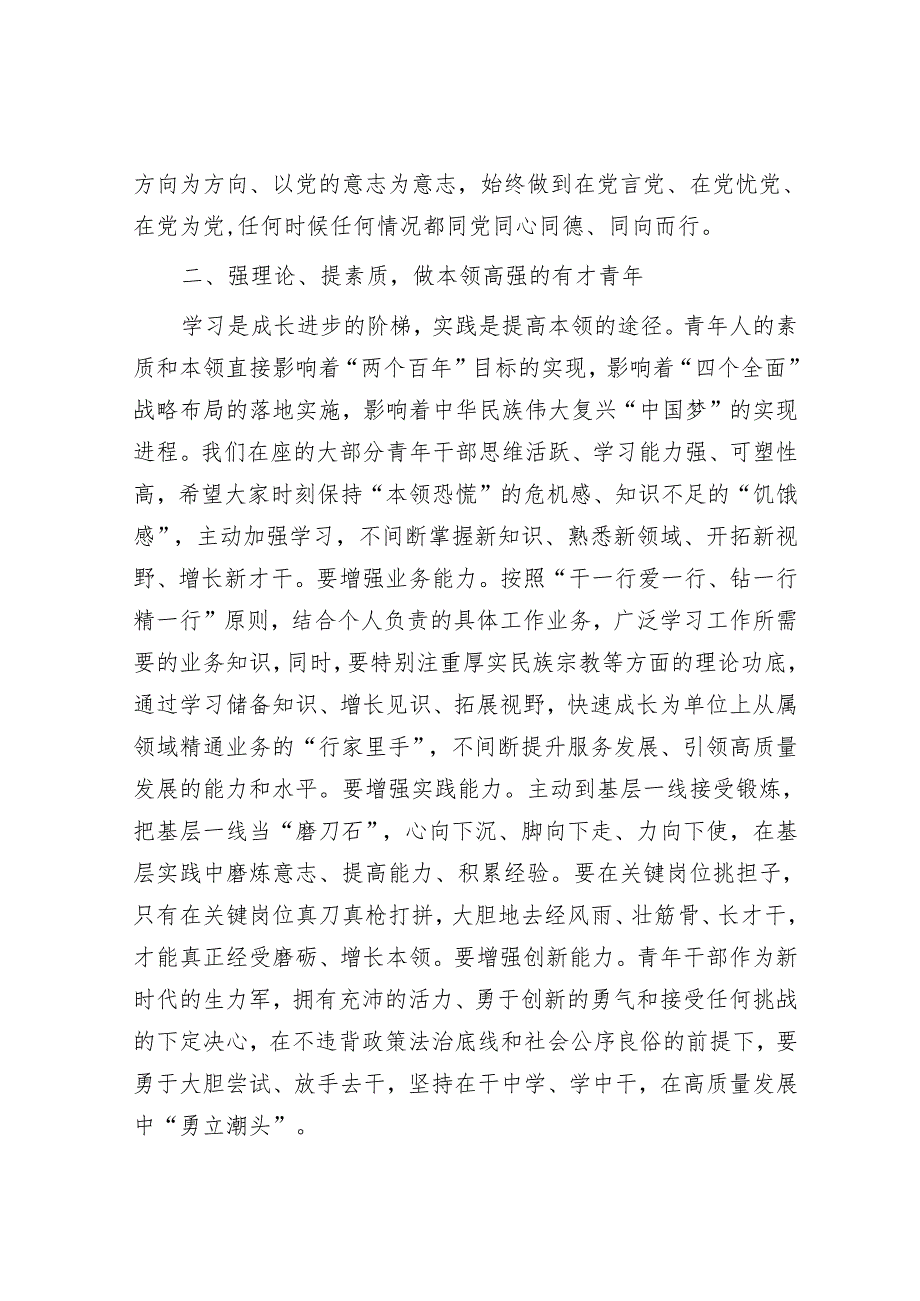 方向为方向、以党的意志为意志，始终做到在党言党、在党忧党、
在党为党,任何时候任何情况都同党同心同德、同向而行。
二、强理论、提素质，做本领高强的有才青年
学习是成长进步的阶梯，实践是提高本领的途径。青年人的素
质和本领直接影响着“两个百年”目标的实现，影响着“四个全面”
战略布局的落地实施，影响着中华民族伟大复兴“中国梦”的实现
进程。我们在座的大部分青年干部思维活跃、学习能力强、可塑性
高，希望大家时刻保持“本领恐慌”的危机感、知识不足的“饥饿
感”，主动加强学习，不间断掌握新知识、熟悉新领域、开拓新视
野、增长新才干。要增强业务能力。按照“干一行爱一行、钻一行
精一行”原则，结合个人负责的具体工作业务，广泛学习工作所需
要的业务知识，同时，要特别注重厚实民族宗教等方面的理论功底，
通过学习储备知识、增长见识、拓展视野，快速成长为单位上从属
领域精通业务的“行家里手”，不间断提升服务发展、引领高质量
发展的能力和水平。要增强实践能力。主动到基层一线接受锻炼，
把基层一线当“磨刀石”，心向下沉、脚向下走、力向下使，在基
层实践中磨炼意志、提高能力、积累经验。要在关键岗位挑担子，
只有在关键岗位真刀真枪打拼，大胆地去经风雨、壮筋骨、长才干，
才能真正经受磨砺、增长本领。要增强创新能力。青年干部作为新
时代的生力军，拥有充沛的活力、勇于创新的勇气和接受任何挑战
的下定决心，在不违背政策法治底线和社会公序良俗的前提下，要
勇于大胆尝试、放手去干，坚持在干中学、学中干，在高质量发展
中“勇立潮头”。